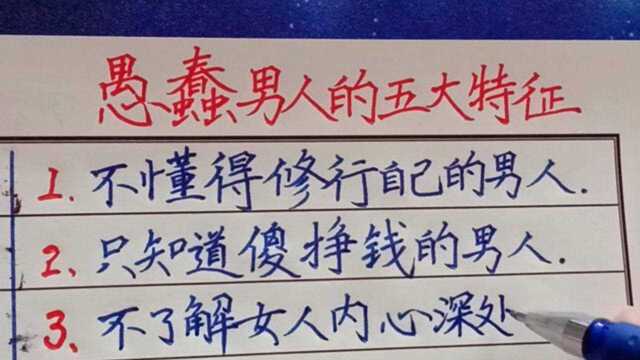 愚蠢男人的五大特征
1、不懂得修行自己的男人.
2、只知道傻挣钱的男人.
3、不了解女人内心深处